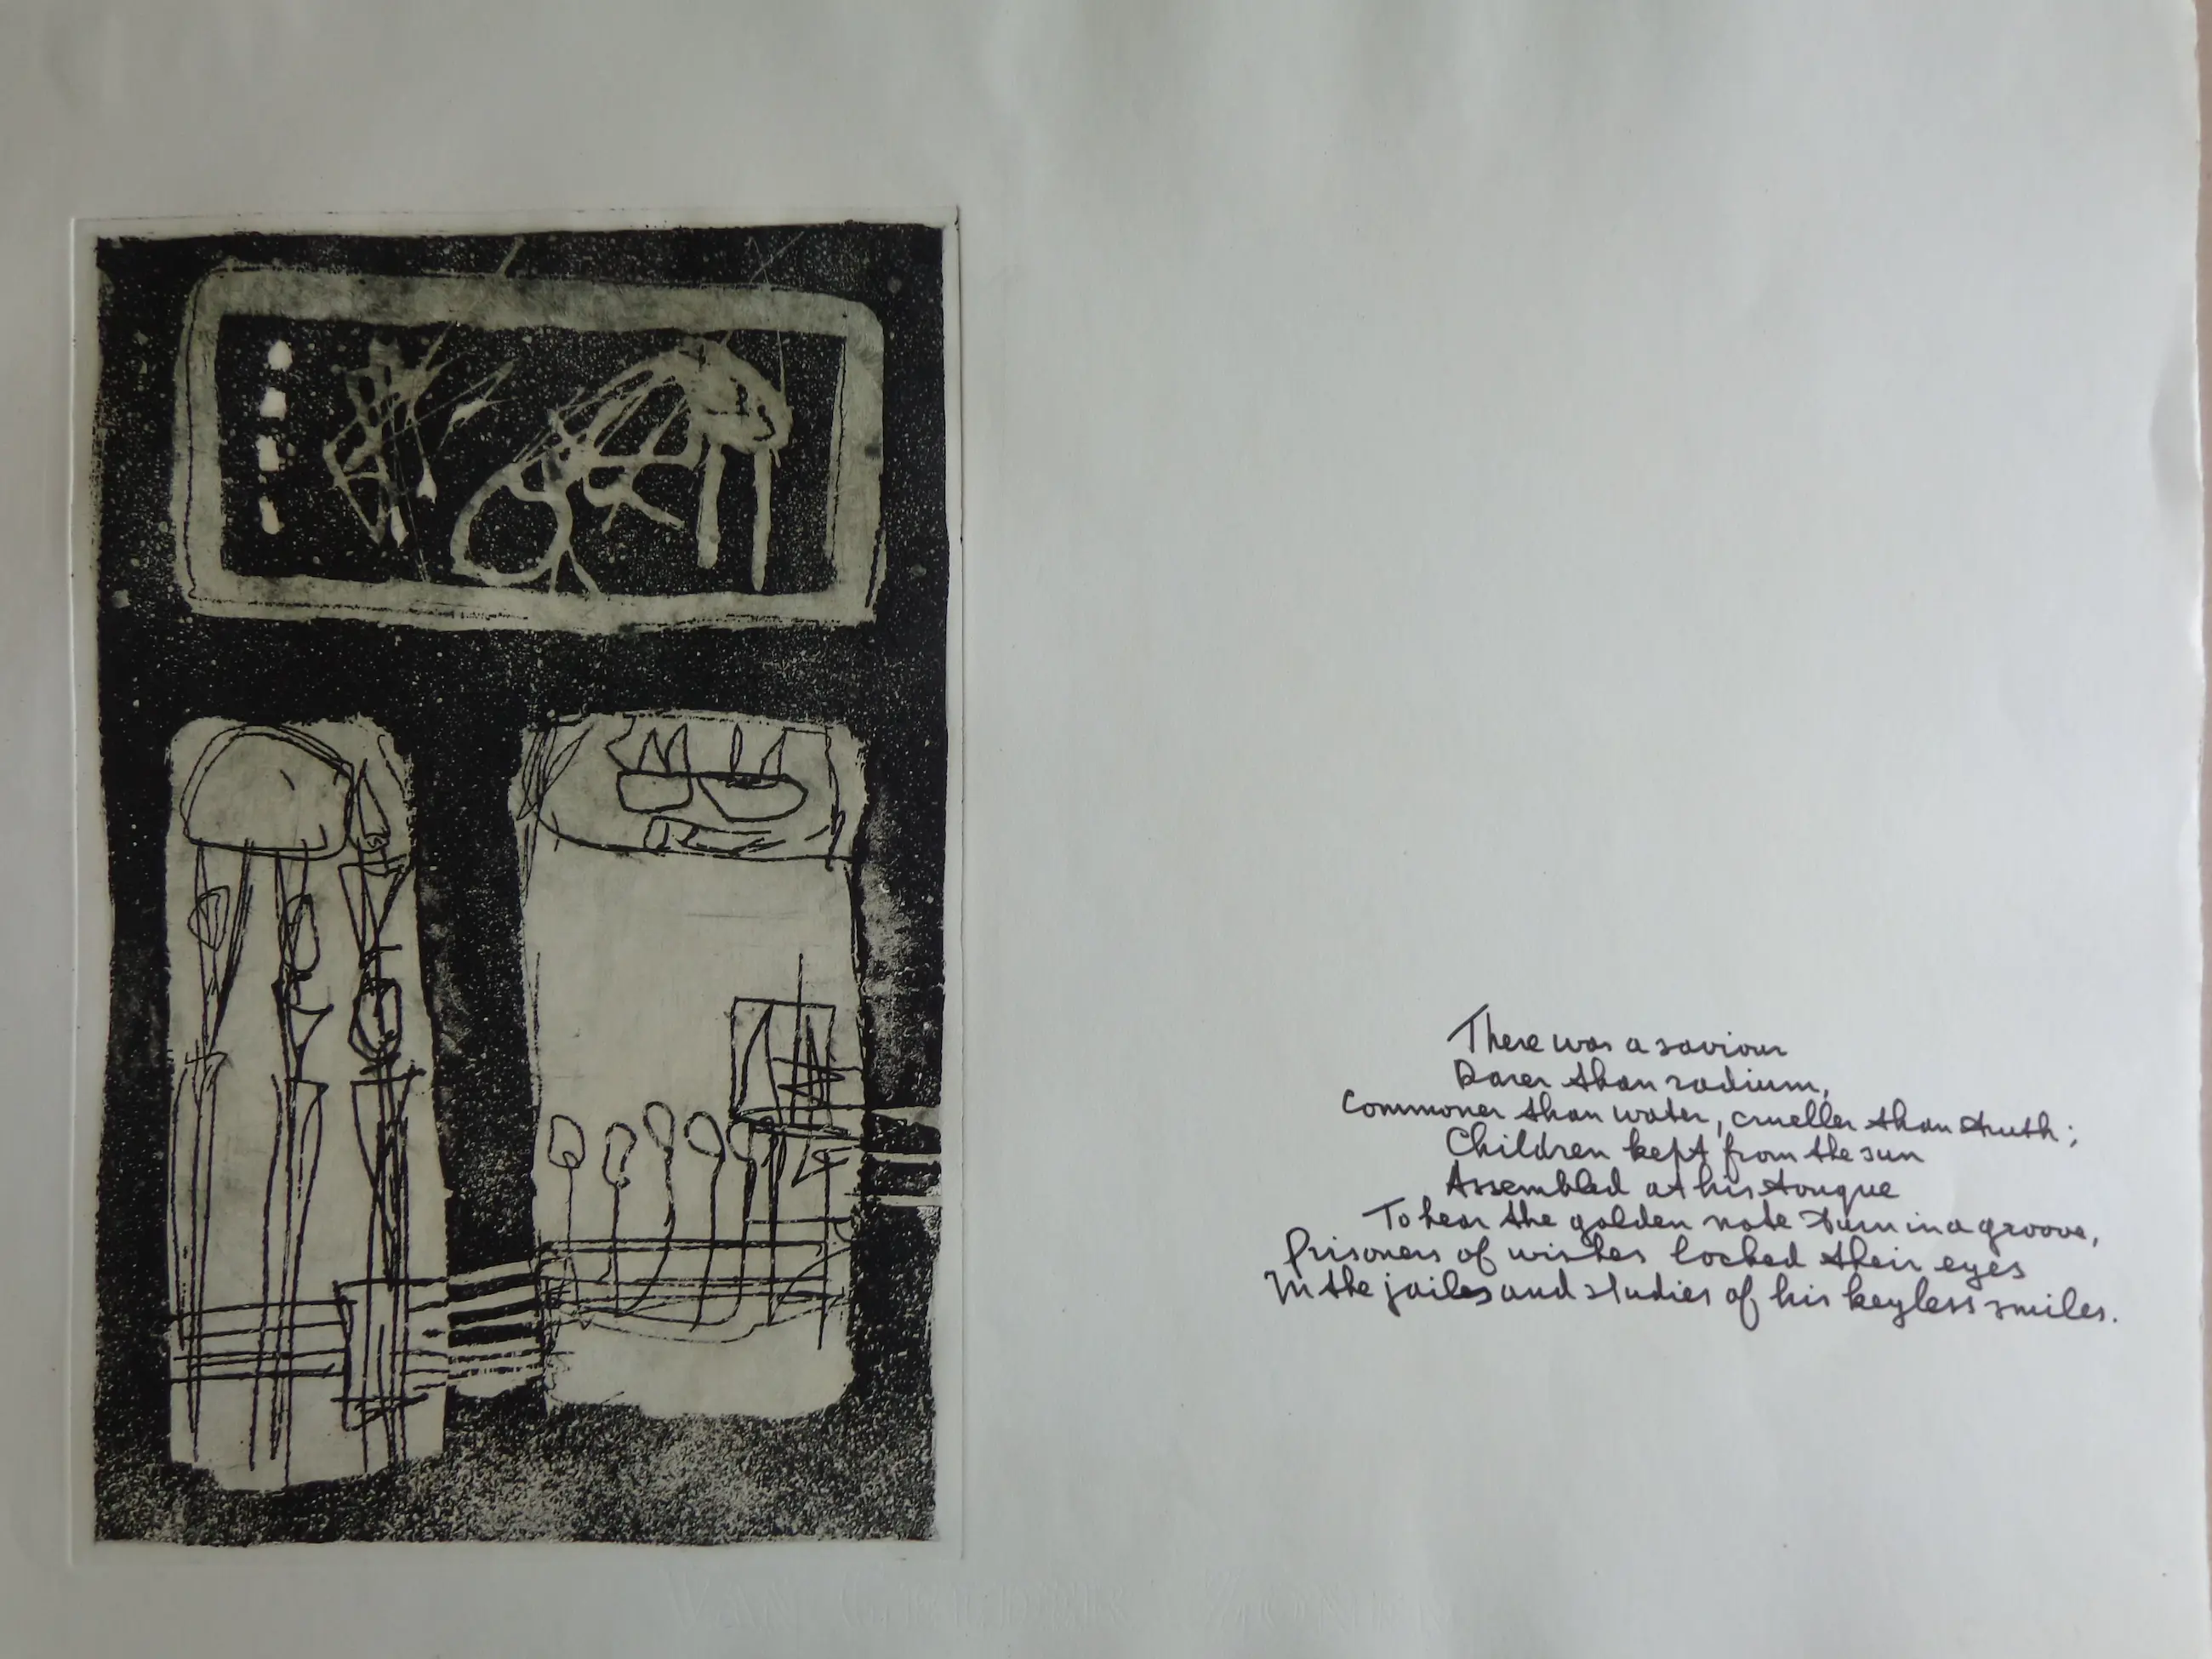 There was a saviour
Rarer than radium,
Commoner than water, crueller than truth;
Children kept from the sun
Assembled at his tongue
To hear the golden note turn in a groove,
Prisoners of wishes locked their eyes
In the jails and studies of his keyless smiles.
VAN GELDER ZONEN